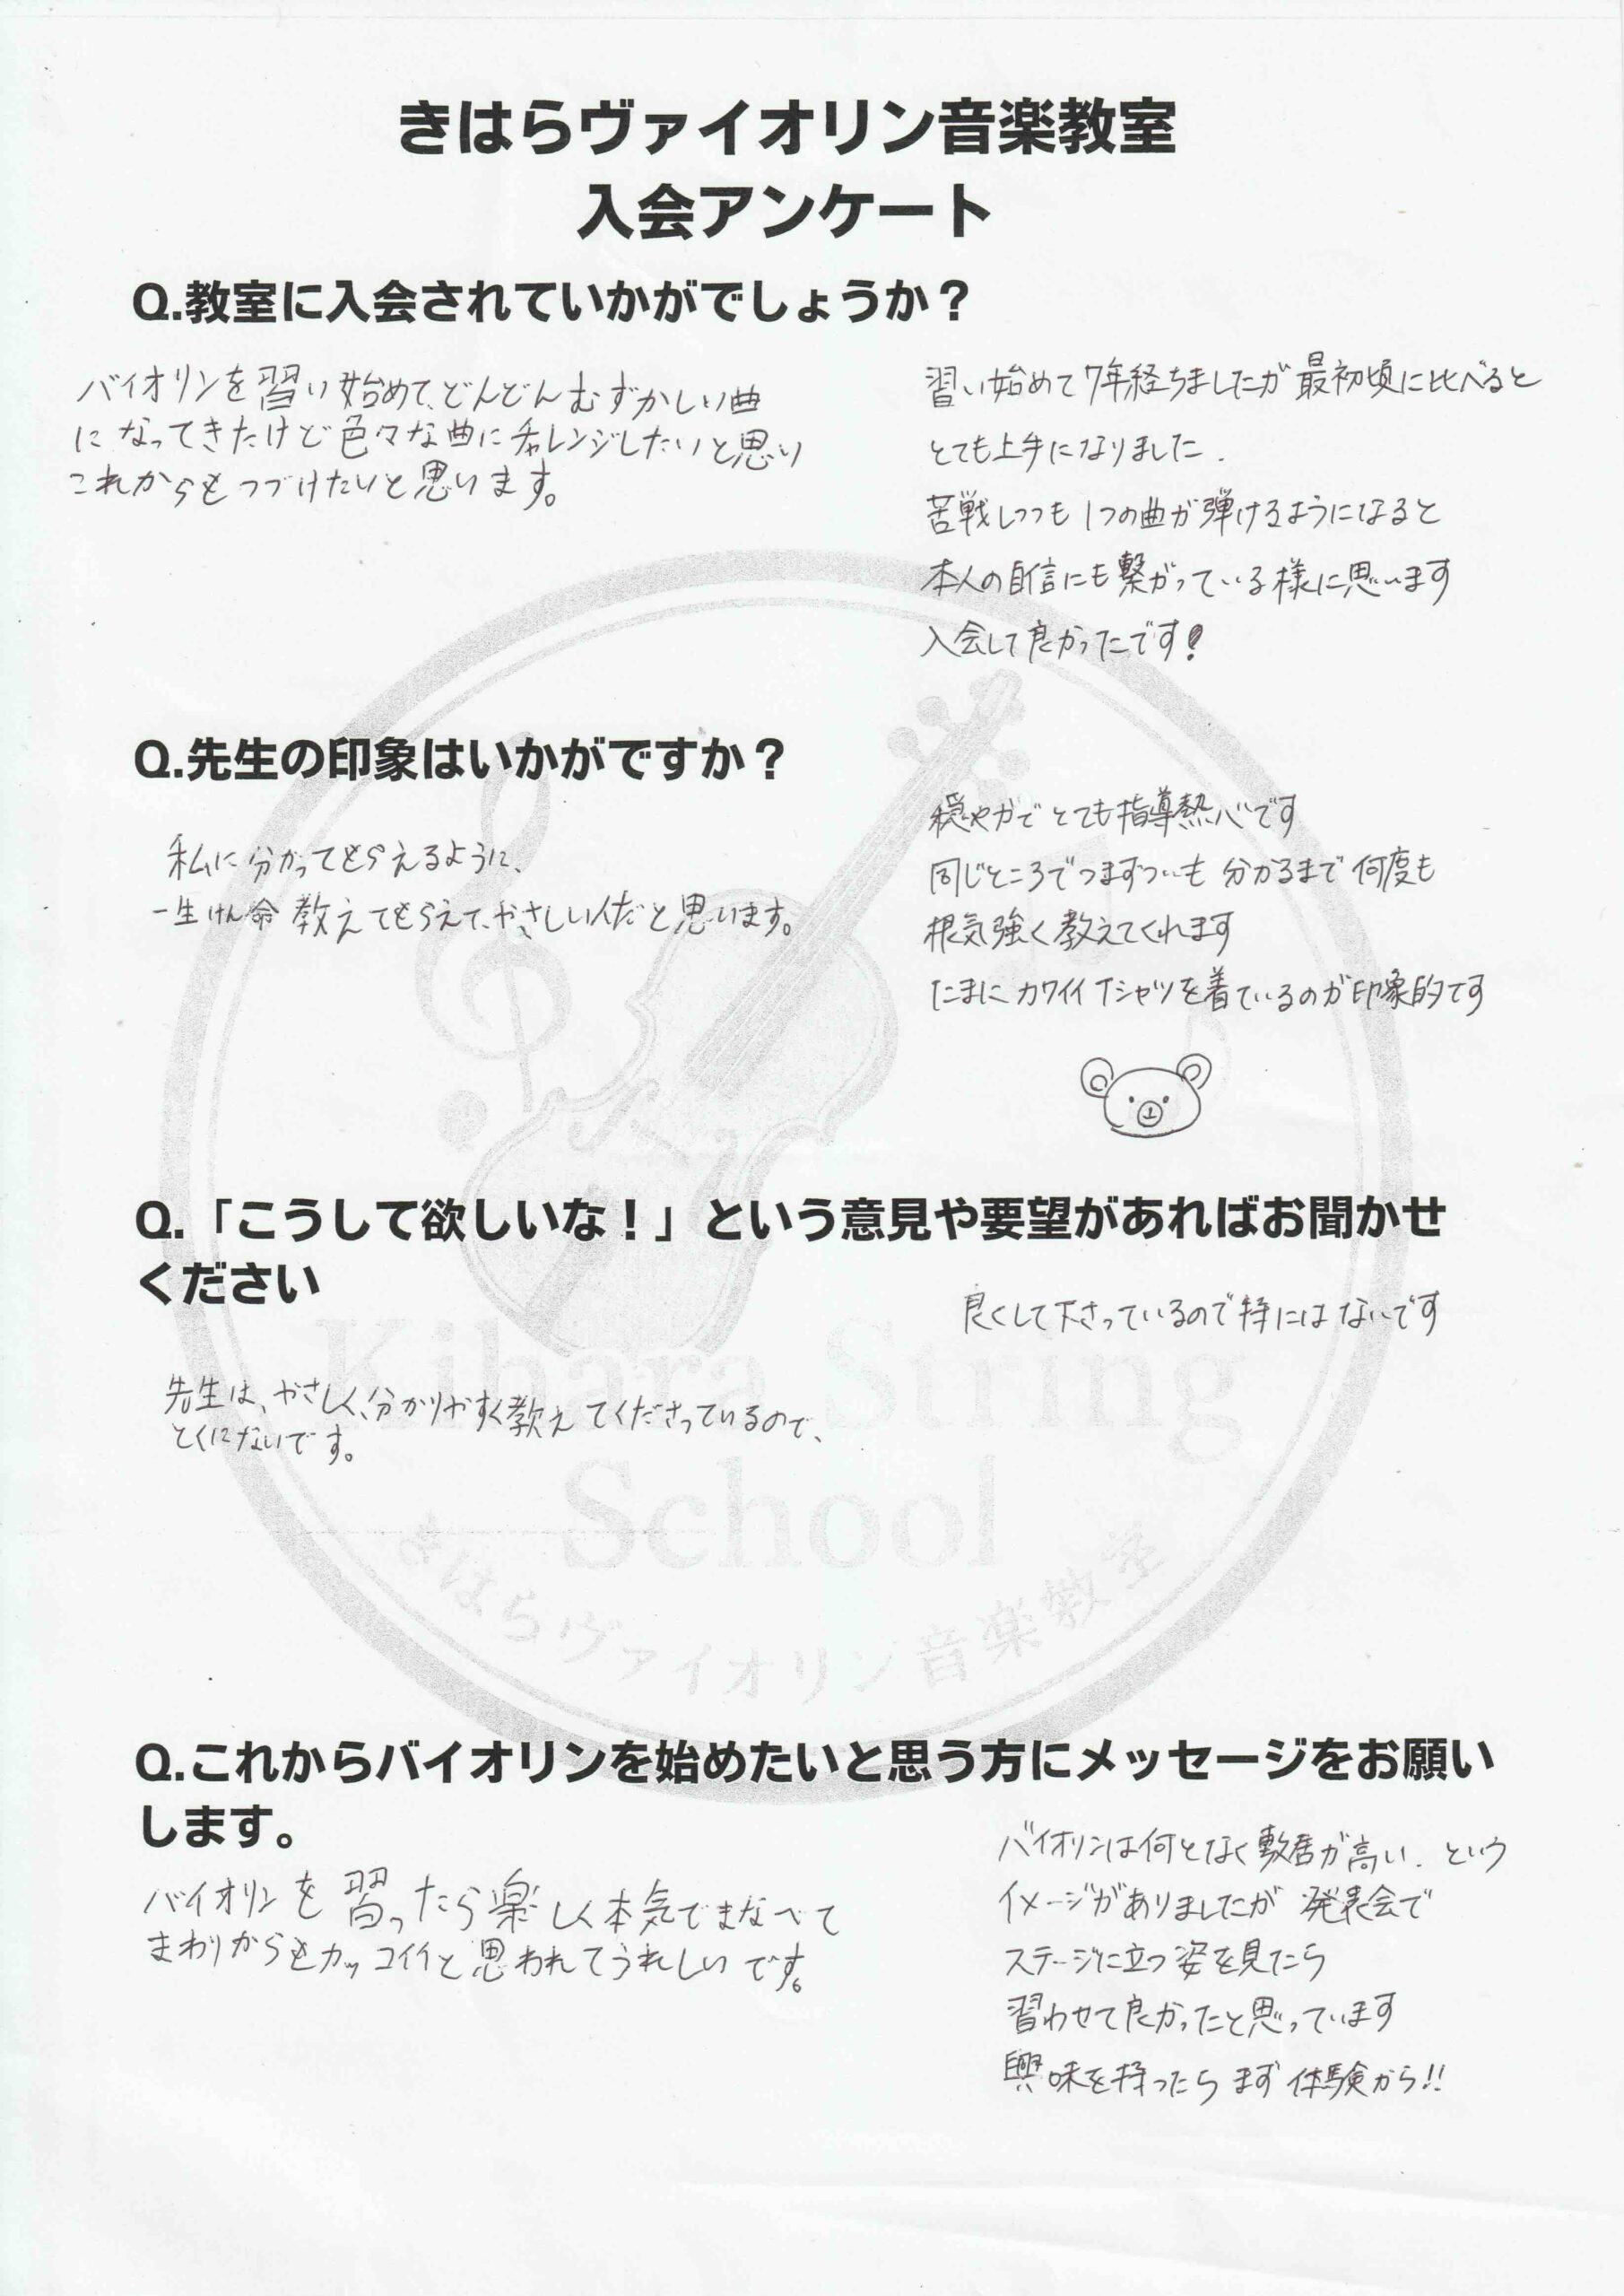 きはらヴァイオリン音楽教室
入会アンケート
Q.教室に入会されていかがでしょうか？
バイオリンを習い始めて、どんどんむずかしい曲
になってきたけど色々な曲にチャレンジしたいと思い
これからもつづけたいと思います。
習い始めて7年経ちましたが最初頃に比べると
とても上手になりました.
苦戦しつつも1つの曲が弾けるようになると
本人の自信にも繋がっている様に思います
入会して良かったです!
Q.先生の印象はいかがですか？
私に分かってもらえるように、
一生けん命教えてもらえて、やさしい人だと思います。
穏やかでとても指導熱心です
同じところでつまずいても分かるまで何度も
根気強く教えてくれます
たまにカワイイTシャツを着ているのが印象的です
Q.「こうして欲しいな！」という意見や要望があればお聞かせ
ください
良くして下さっているので特にはないです
先生は、やさしく、分かりやすく教えてくださっているので、
とくにないです。
Kihara String
School
きはらヴァイオリン音楽教室
Q.これからバイオリンを始めたいと思う方にメッセージをお願い
します。
バイオリンを習ったら楽しく本気でまなべて
まわりからもカッコイイと思われてうれしいです。
バイオリンは何となく敷居が高い.という
イメージがありましたが発表会で
ステージに立つ姿を見たら
習わせて良かったと思っています
興味を持ったらまず体験から!!